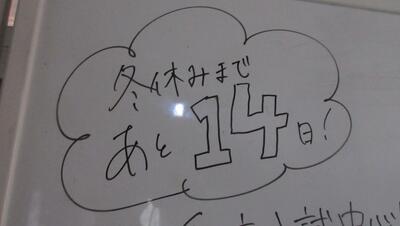 冬休みまで
あと14日!